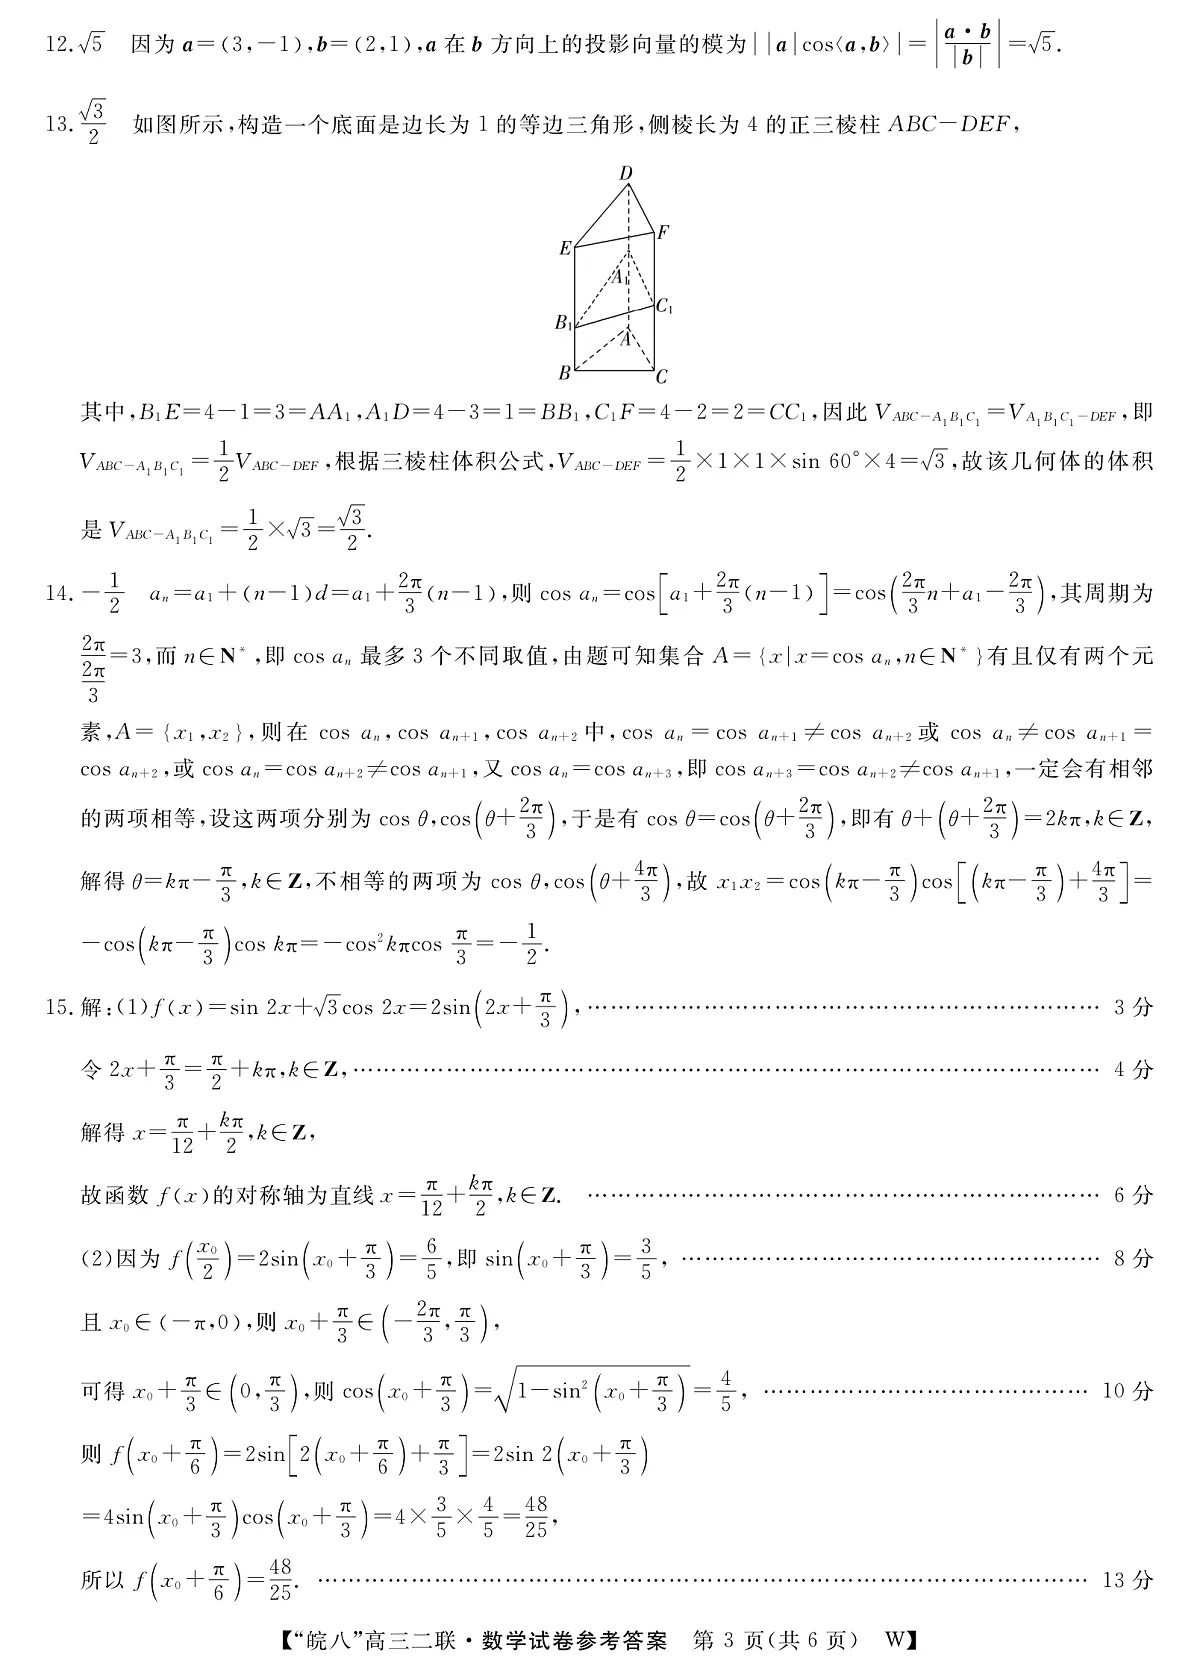 12. √5 因为 a=(3,-1),b=(2,1),a 在 b 方向上的投影向量的模为||a|cos⟨a,b⟩|=|a·b/|b||=√5.
13. √3/2 如图所示,构造一个底面是边长为 1 的等边三角形,侧棱长为 4 的正三棱柱 ABC-DEF,
D
E
F
A₁
C₁
B₁
A
B
C
其中,B₁E=4-1=3=AA₁,A₁D=4-3=1=BB₁,C₁F=4-2=2=CC₁,因此 V_{ABC-A₁B₁C₁}=V_{A₁B₁C₁-DEF},即
V_{ABC-A₁B₁C₁}=1/2 V_{ABC-DEF},根据三棱柱体积公式,V_{ABC-DEF}=1/2×1×1×sin 60°×4=√3,故该几何体的体积
是 V_{ABC-A₁B₁C₁}=1/2×√3=√3/2.
14. -1/2 aₙ=a₁+(n-1)d=a₁+2π/3(n-1),则 cos aₙ=cos[a₁+2π/3(n-1)]=cos(2π/3 n+a₁-2π/3),其周期为
2π/(2π/3)=3,而 n∈N*,即 cos aₙ 最多 3 个不同取值,由题可知集合 A={x|x=cos aₙ,n∈N*}有且仅有两个元
素,A={x₁,x₂},则在 cos aₙ,cos aₙ₊₁,cos aₙ₊₂ 中,cos aₙ=cos aₙ₊₁≠cos aₙ₊₂ 或 cos aₙ≠cos aₙ₊₁=
cos aₙ₊₂,或 cos aₙ=cos aₙ₊₂≠cos aₙ₊₁,又 cos aₙ=cos aₙ₊₃,即 cos aₙ₊₃=cos aₙ₊₂≠cos aₙ₊₁,一定会有相邻
的两项相等,设这两项分别为 cos θ,cos(θ+2π/3),于是有 cos θ=cos(θ+2π/3),即有 θ+(θ+2π/3)=2kπ,k∈Z,
解得 θ=kπ-π/3,k∈Z,不相等的两项为 cos θ,cos(θ+4π/3),故 x₁x₂=cos(kπ-π/3)cos[(kπ-π/3)+4π/3]=
-cos(kπ-π/3)cos kπ=-cos²kπcos π/3=-1/2.
15. 解:(1)f(x)=sin 2x+√3cos 2x=2sin(2x+π/3), …………………………………………………… 3 分
令 2x+π/3=π/2+kπ,k∈Z, …………………………………………………………………………… 4 分
解得 x=π/12+kπ/2,k∈Z,
故函数 f(x)的对称轴为直线 x=π/12+kπ/2,k∈Z. …………………………………………………… 6 分
(2)因为 f(x₀/2)=2sin(x₀+π/3)=6/5,即 sin(x₀+π/3)=3/5, ………………………………………… 8 分
且 x₀∈(-π,0),则 x₀+π/3∈(-2π/3,π/3),
可得 x₀+π/3∈(0,π/3),则 cos(x₀+π/3)=√(1-sin²(x₀+π/3))=4/5, ………………………………… 10 分
则 f(x₀+π/6)=2sin[2(x₀+π/6)+π/3]=2sin 2(x₀+π/3)
=4sin(x₀+π/3)cos(x₀+π/3)=4×3/5×4/5=48/25,
所以 f(x₀+π/6)=48/25. ……………………………………………………………………………… 13 分
【“皖八”高三二联·数学试卷参考答案 第 3 页(共 6 页) W】